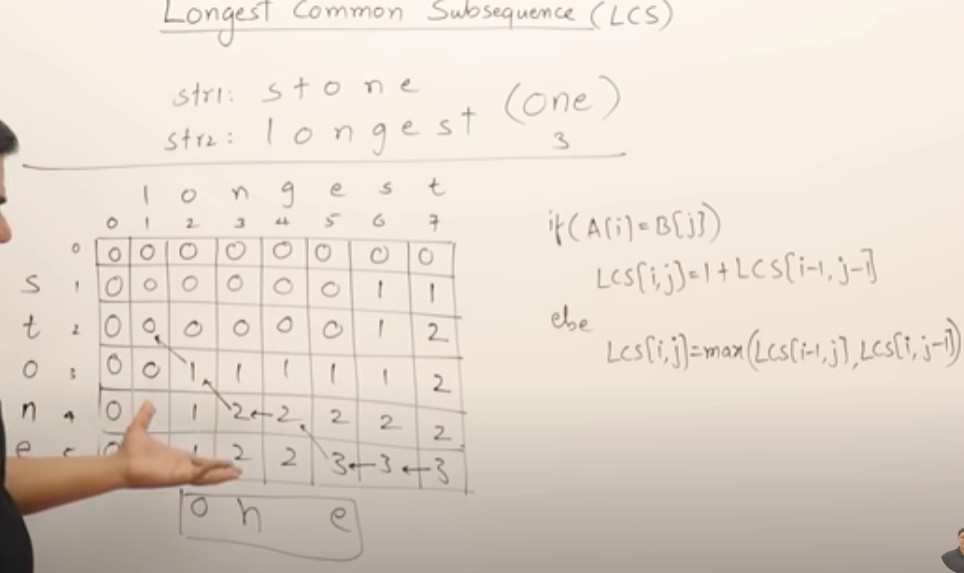 Longest Common Subsequence (LCS)
str1: s t o n e
(one)
str2: l o n g e s t
3
l o n g e s t
0 1 2 3 4 5 6 7
0 0 0 0 0 0 0 0 0
s 1 0 0 0 0 0 0 1 1
t 2 0 0 0 0 0 0 1 2
o 3 0 0 1 1 1 1 1 2
n 4 0 1 2 2 2 2 2
e 2 2 3 3 3
o n e
if(A[i]=B[j])
LCS[i,j]=1+LCS[i-1,j-1]
else
LCS[i,j]=max(LCS[i-1,j],LCS[i,j-1])